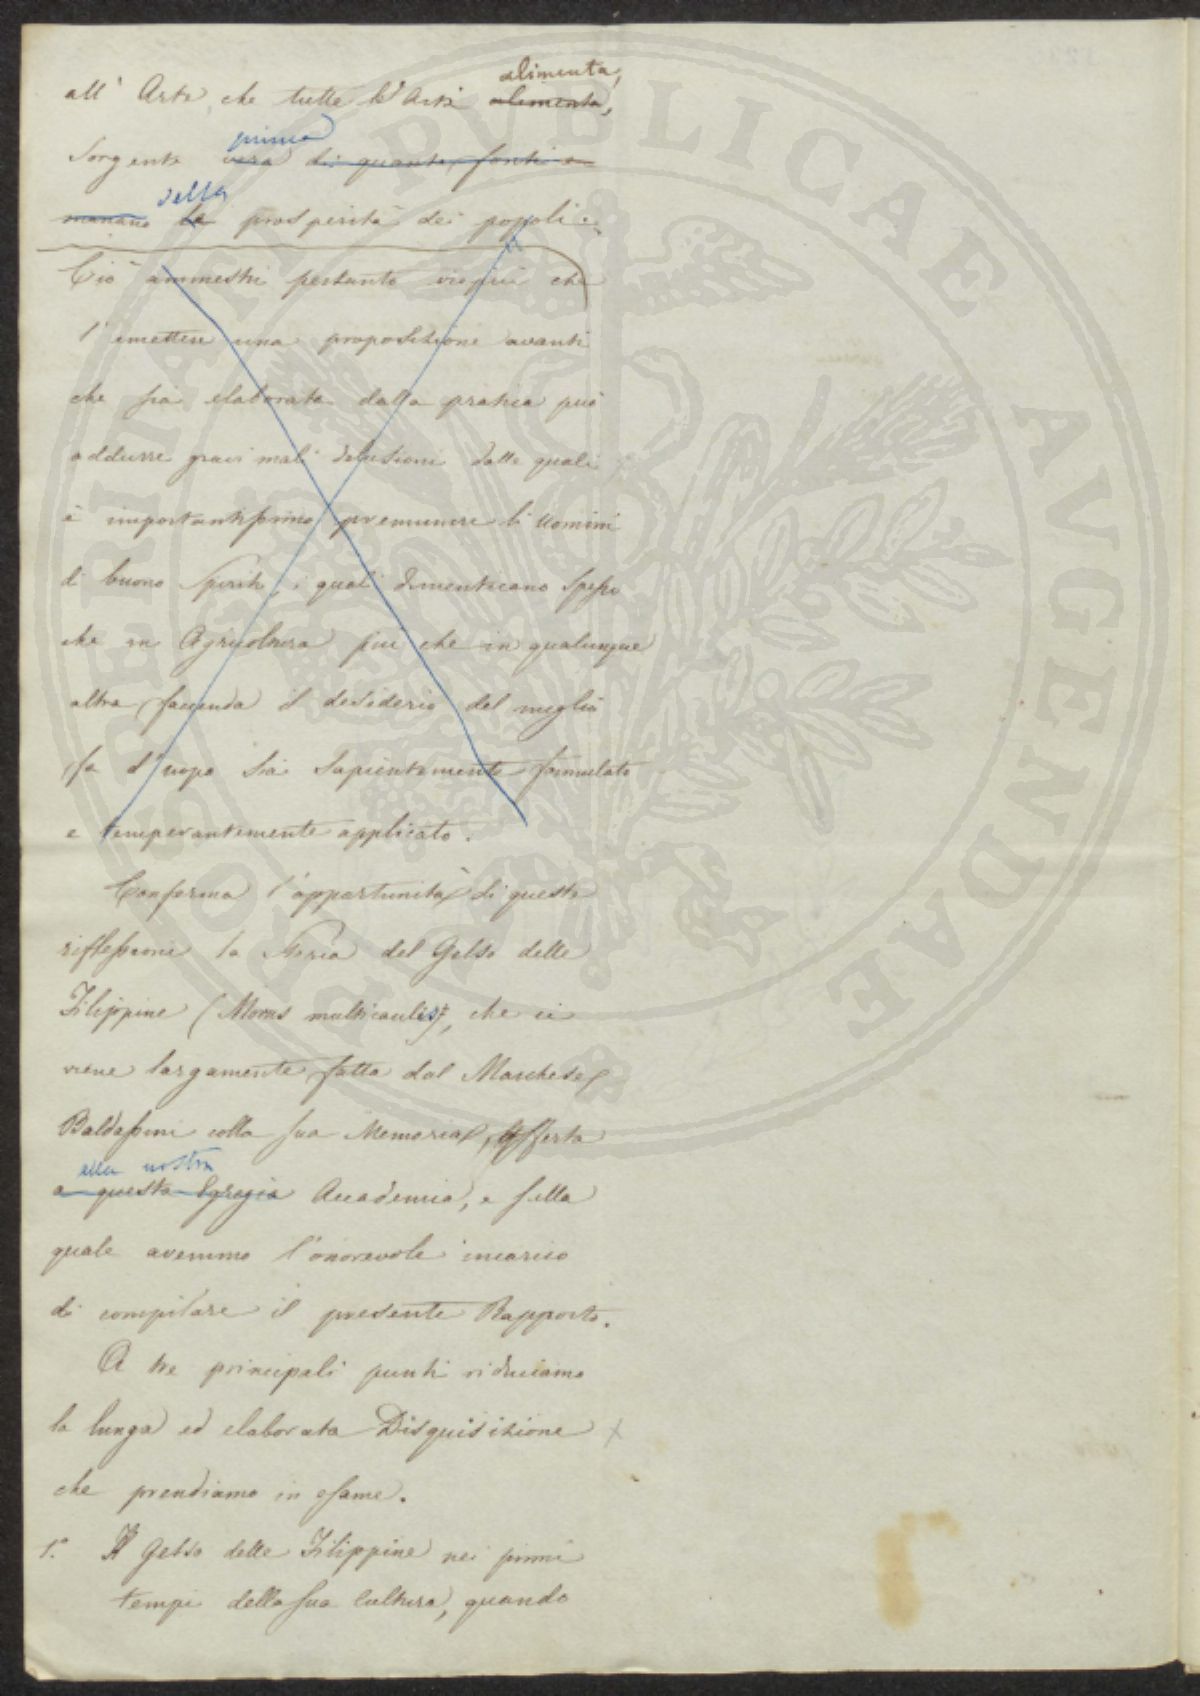 all' Arte, che tutte le Arti alimenta, alimenta,
Sorgente prima vera di quante fonti e-
manano della la prosperità dei popoli.
Ciò ammestri pertanto vieppiù che
l'emettere una proposizione avanti
che sia elaborata dalla pratica può
addurre gravi mali delusioni dalle quali
è importantissimo premunire li Uomini
di buono Spirito, i quali dimenticano spesso
che in Agricoltura più che in qualunque
altra faccenda il desiderio del meglio
fa d'uopo sia sapientemente formulato
e temperantemente applicato.
Conferma l'opportunità di queste
riflessioni la Storia del Gelso delle
Filippine (Morus multicaulis), che ci
viene largamente fatta dal Marchese
Baldassini colla sua Memoria, offerta
alla nostra
a questa Egregia Accademia, e sulla
quale avemmo l'onorevole incarico
di compilare il presente Rapporto.
A tre principali punti riduciamo
la lunga ed elaborata Disquisizione
che prendiamo in esame.
1.° Il Gelso delle Filippine nei primi
tempi della sua Cultura, quando
PROSPERITATI PVBLICAE AVGENDAE